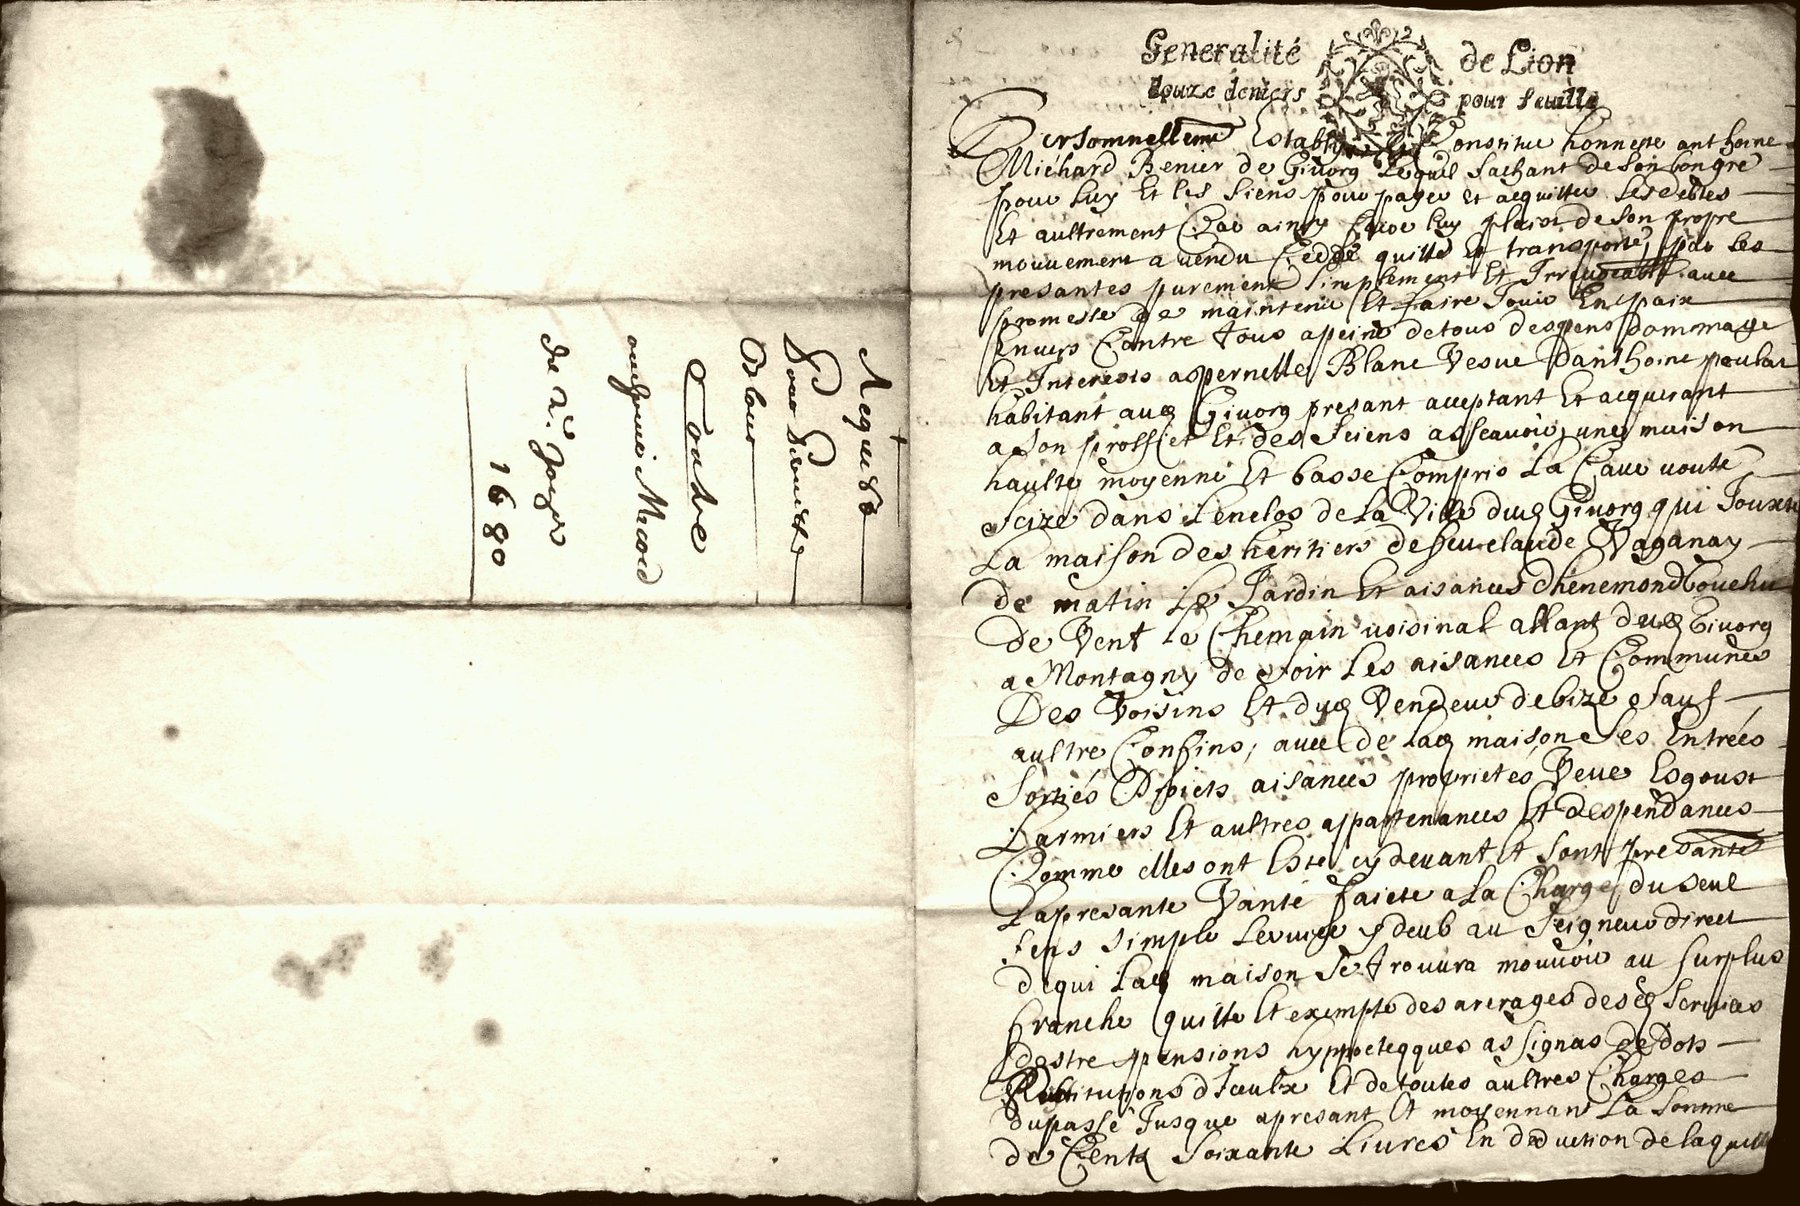 Generalité de Lion
douze deniers pour feuille
Personnellemt Estably Et Constitue honneste anthoine
Michard Benier de Givorg Lequel sachant de son bon gre
pour Luy Et les siens pour payer et acquitter ses debtes
Et aultrement Car ainsy luy plaict de son propre
mouvement a vendu Ceddé quitté et transporté par les
presantes purement simplement Et Irrevocablt avec
promesse de maintenir Et faire Jouir En paix
Envers Contre tous a peine de tous despens dommage
Et Interests a pernette Blanc Vesve danthoine
habitant aud Givorg presant acceptant Et acquerant
a son proffict Et des siens asscavoir une maison
haulte moyenne Et basse Compris La Cave voute
scize dans Lenclos de La Ville dud Givorg qui Jouxte
La maison des heritiers de feu claude Vaganay
de matin Le Jardin Et aisances dhenemond
de Vent Le Chemain voisinal allant dud Givorg
a Montagny de soir Les aisances Et Communes
Des Voisins Et dud Vendeur de bize sauf
aultre Confins, avec de lad maison ses Entrées
sorties Droicts aisances proprietés Veue Esgoust
Larmiers Et aultres appartenances Et despendances
Comme elles ont Esté cy devant Et sont presante
Lapresante Vante faicte a La Charge du seul
sens simple servige y deub au seigneur direct
de qui Lad maison se trouvra mouvoir au surplus
franche quitte Et exempte des arerages desd services
destre pensions hyppotecques assignas de dots
Restitutions diceulx Et de toutes aultres Charges
du passé Jusque apresant Et moyennant La somme
de Cent soixante Livres En deduction de laquelle
Acquis
pour
Blanc
Contre
anthoine Micard
1680